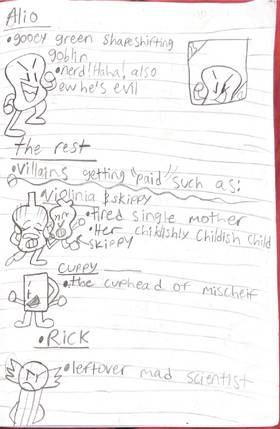 Alio
•gooey green shapeshifting
goblin
•nerd! Haha! also
ew he's evil
the rest
•Villains getting "paid" such as:
Violinia & skippy
•tired single mother
•Her childishly childish child
skippy
CUPPY
•the cuphead of mischeif
•RICK
•leftover mad scientist